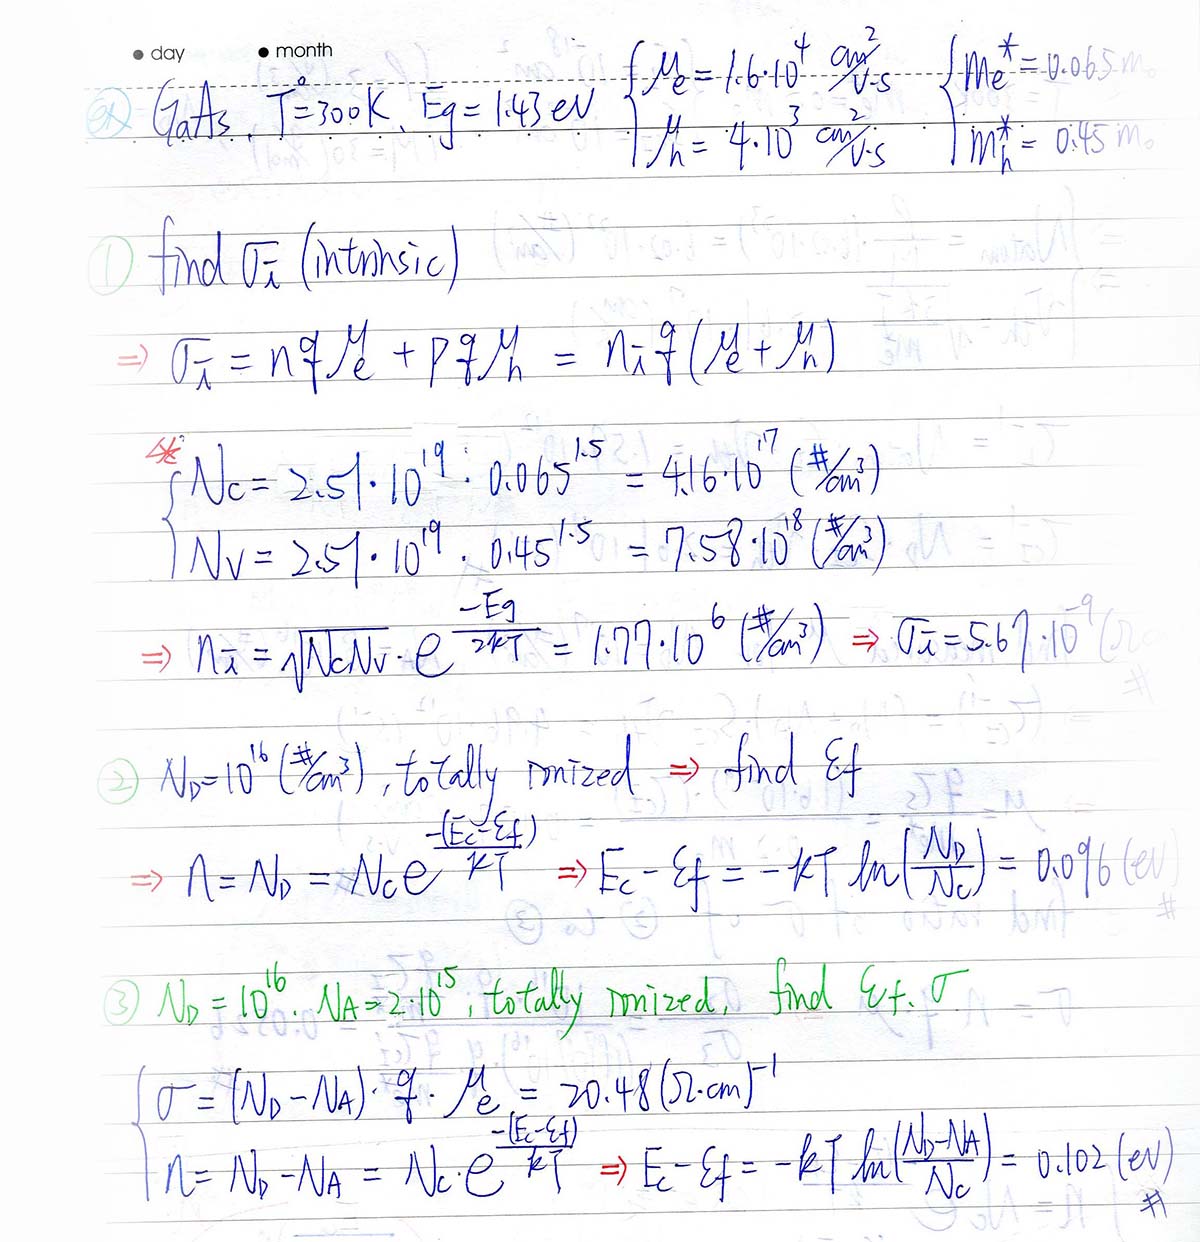 ● day ● month
ex) GaAs, T=300°K, Eg = 1.43 eV { μe = 1.6·10^4 cm²/V·s { me* = 0.065 m₀
μh = 4·10^3 cm²/V·s mh* = 0.45 m₀
① find σi (intrinsic)
⇒ σi = nqμe + pqμh = ni q (μe + μh)
{ Nc = 2.51·10^19 · 0.065^1.5 = 4.16·10^17 (#/cm³)
Nv = 2.51·10^19 · 0.45^1.5 = 7.58·10^18 (#/cm³)
⇒ ni = √NcNv · e^(-Eg/2kT) = 1.77·10^6 (#/cm³) ⇒ σi = 5.67·10^-9 (Ω·cm
#
② ND = 10^16 (#/cm³), totally ionized ⇒ find Ef
⇒ n = ND = Nc e^(-(Ec-Ef)/kT) ⇒ Ec - Ef = -kT ln(ND/Nc) = 0.096 (eV)
#
③ ND = 10^16, NA = 2·10^15, totally ionized, find Ef, σ
{ σ = (ND - NA)·q·μe = 20.48 (Ω·cm)^-1
n = ND - NA = Nc·e^(-(Ec-Ef)/kT) ⇒ Ec - Ef = -kT ln((ND-NA)/Nc) = 0.102 (eV)
#